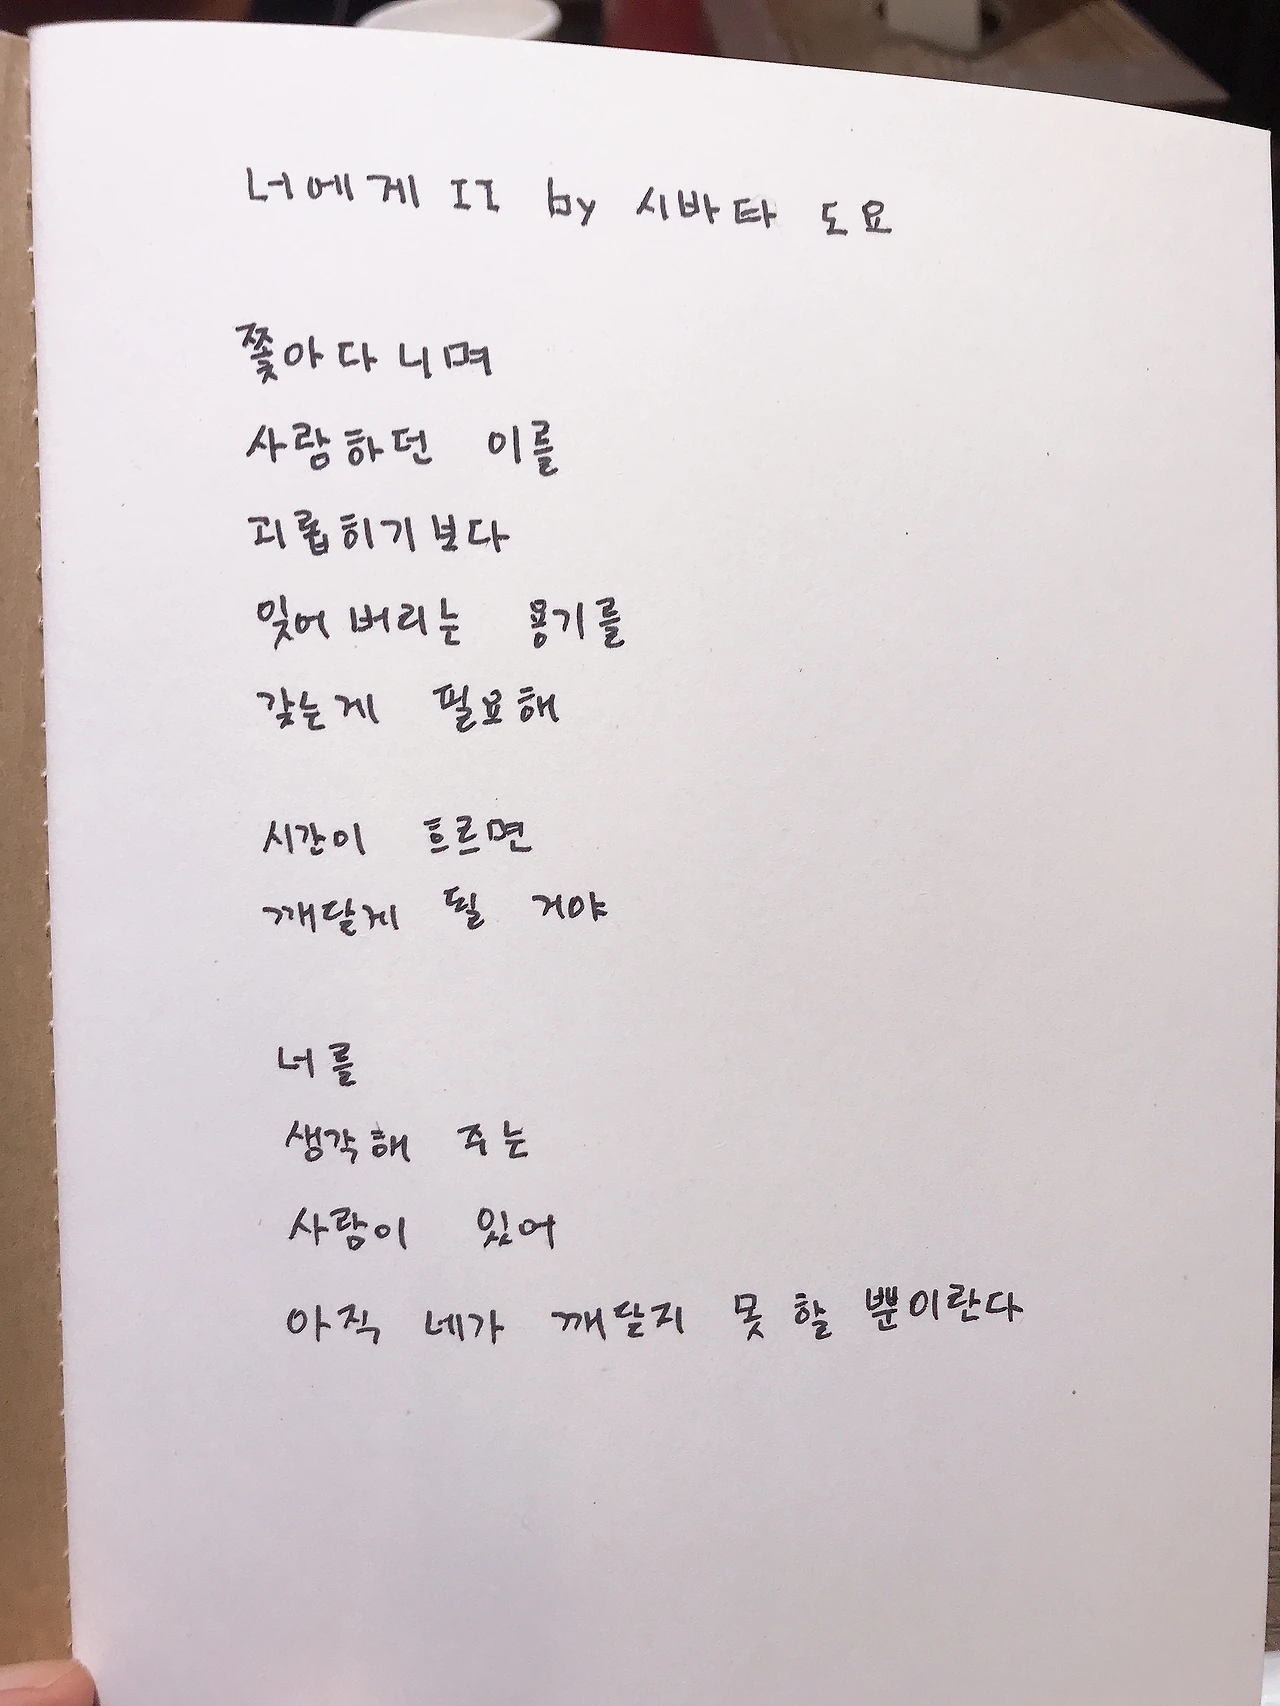 너에게 II by 시바타 도요
쫓아다니며
사람하던 이를
괴롭히기보다
잊어버리는 용기를
갖는게 필요해
시간이 흐르면
깨닫게 될 거야
너를
생각해 주는
사람이 있어
아직 네가 깨닫지 못 할 뿐이란다